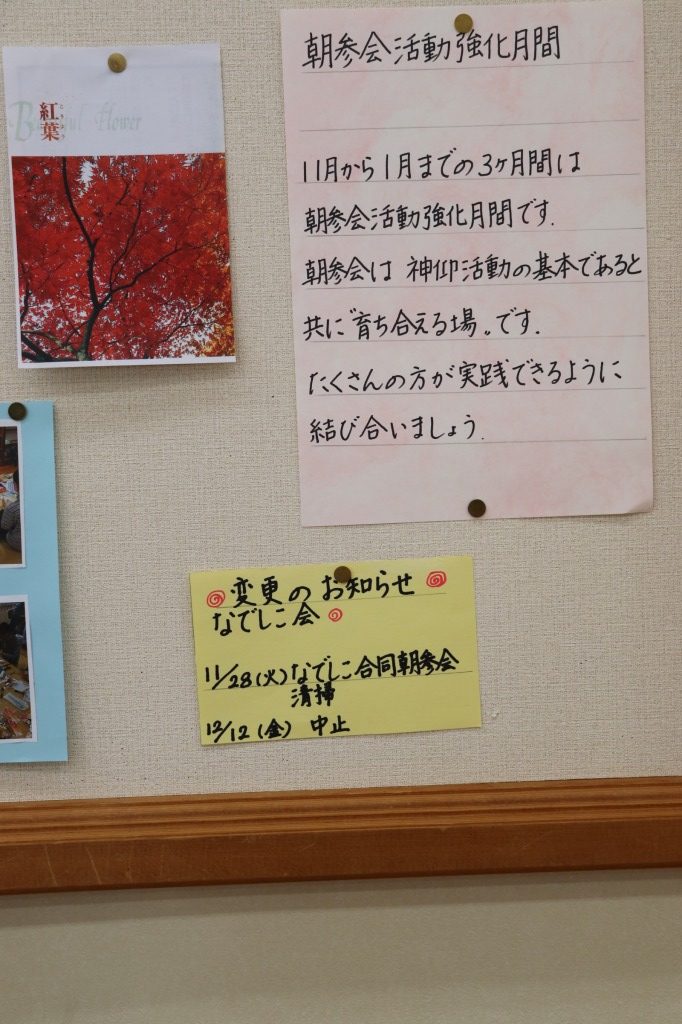 Beautiful Flower
紅葉
朝参会活動強化月間
11月から1月までの3ヶ月間は
朝参会活動強化月間です.
朝参会は 神仰活動の基本であると
共に"育ち合える場"です.
たくさんの方が実践できるように
結び合いましょう.
変更のお知らせ
なでしこ会
11/28(火)なでしこ合同朝参会
清掃
12/12(金) 中止